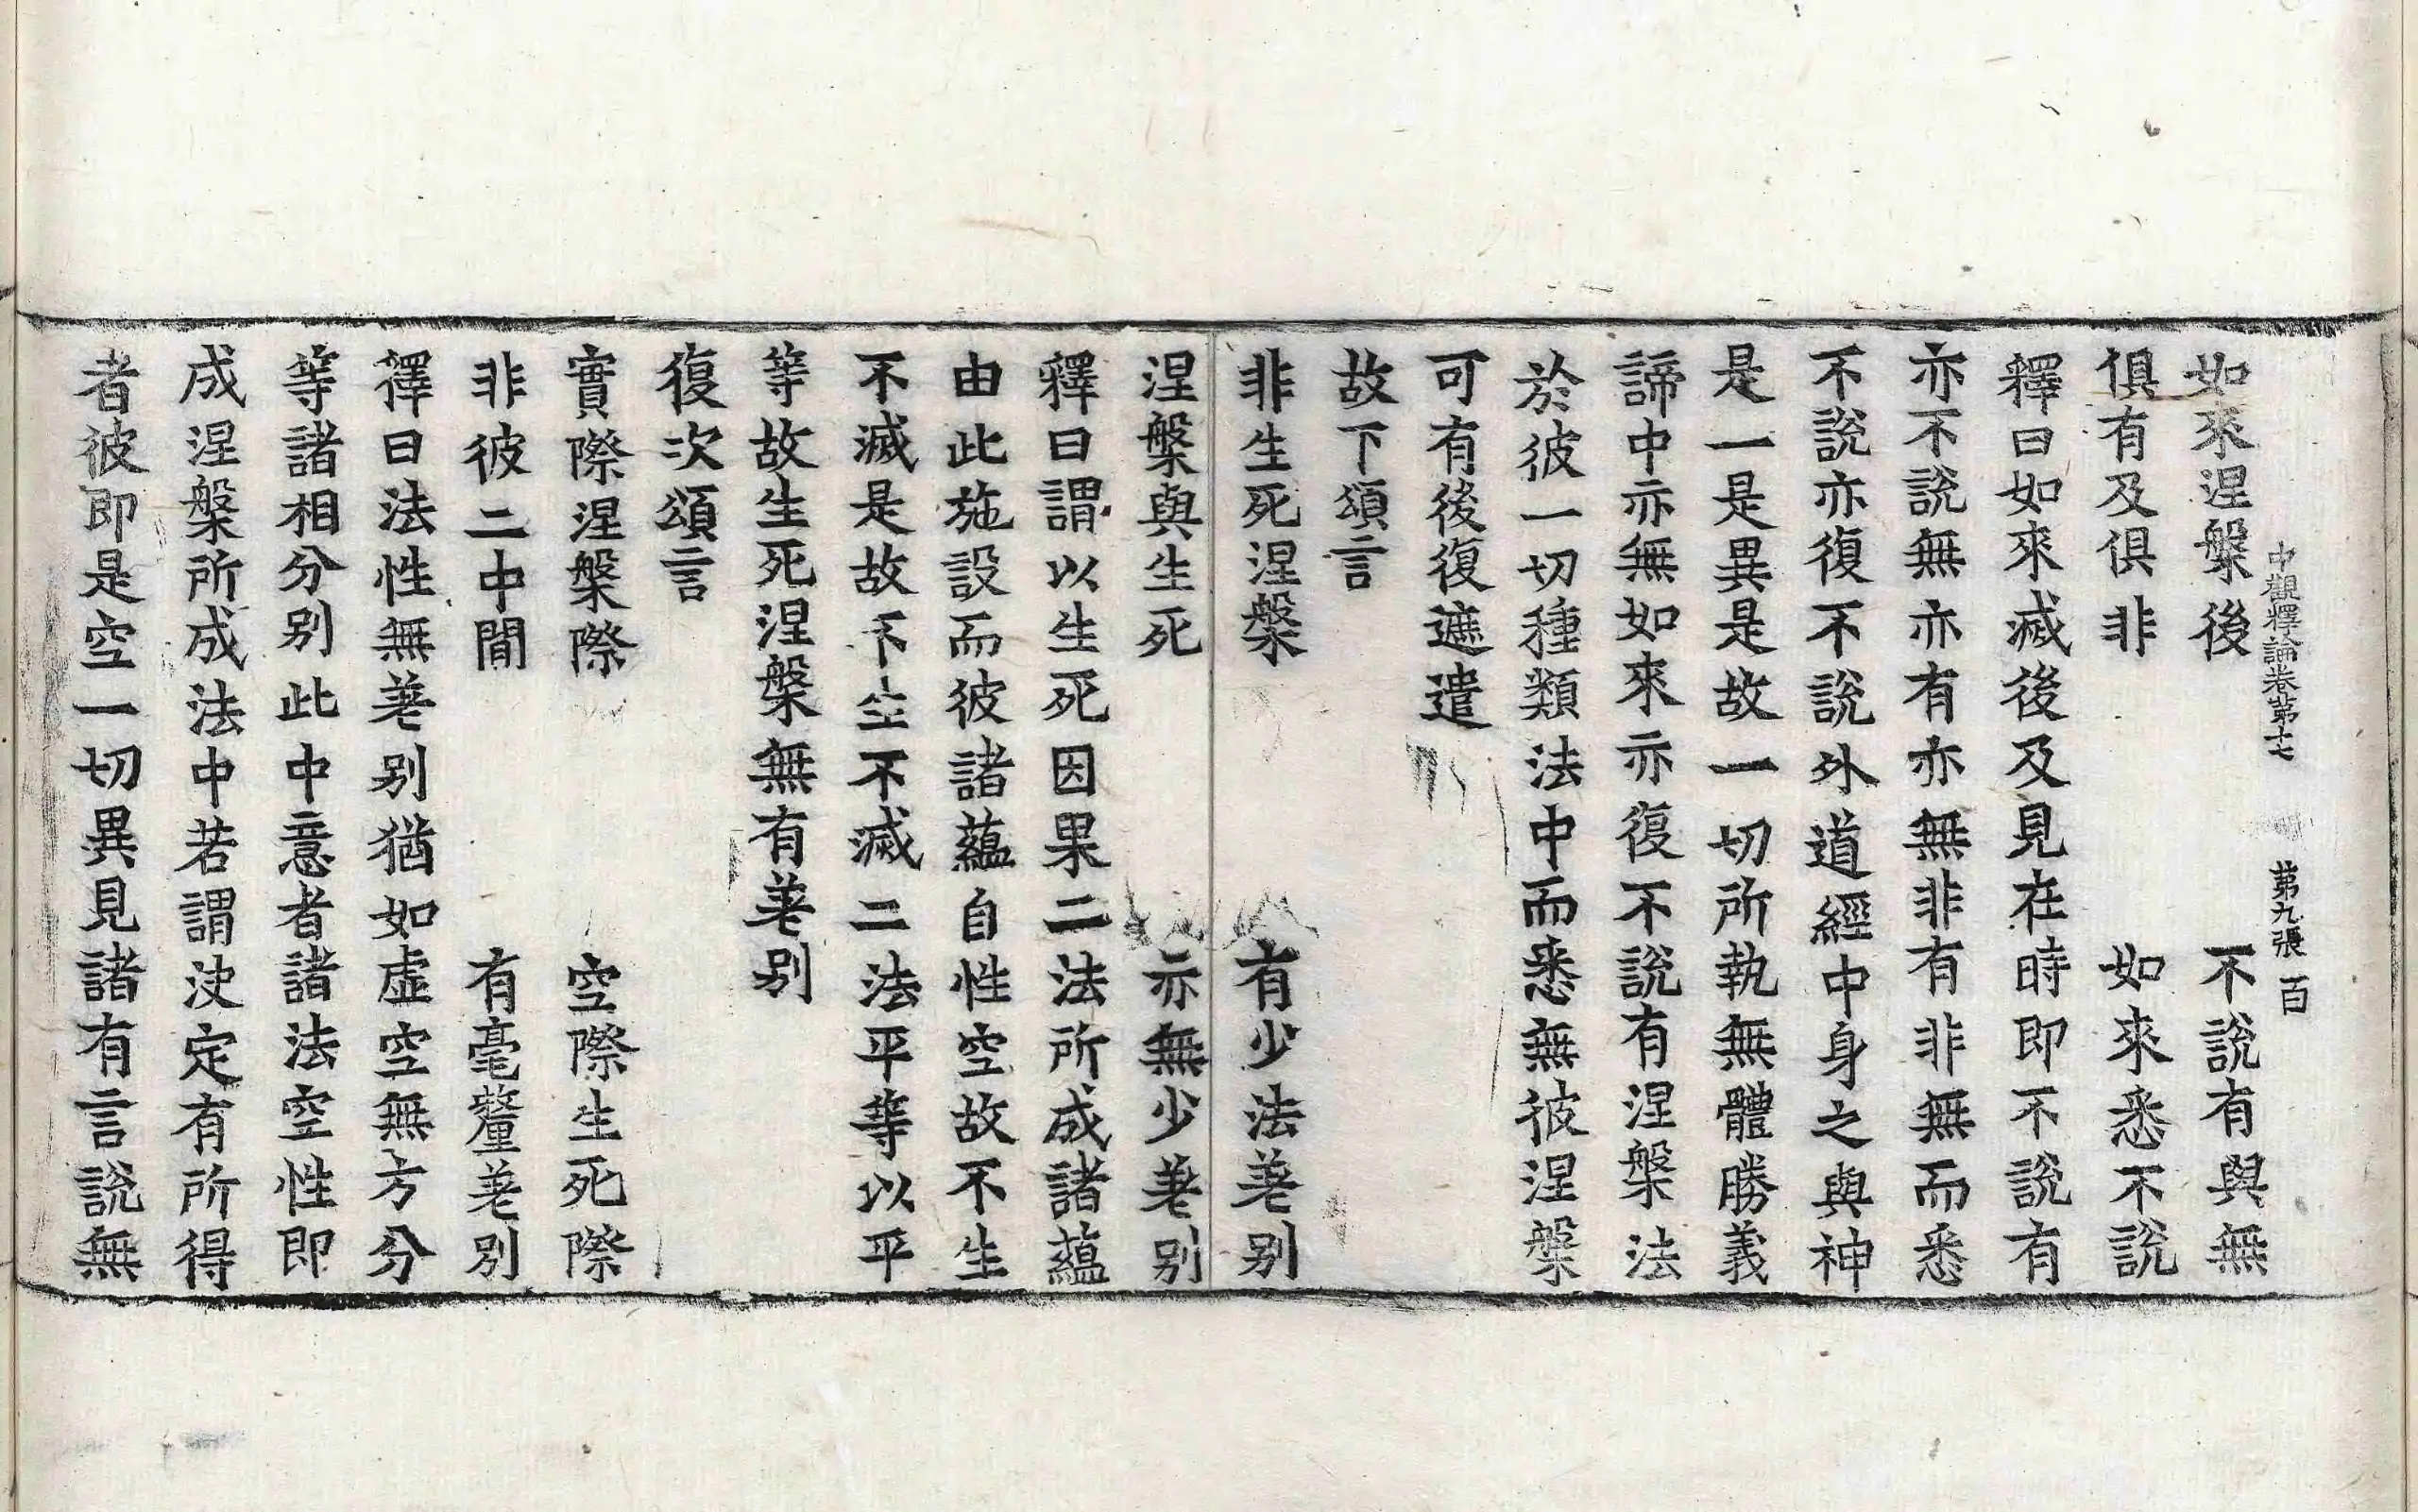 中觀釋論卷第十七　第九張　百
如來涅槃後　不說有與無
俱有及俱非　如來悉不說
釋曰如來滅後及見在時即不說有
亦不說無亦有亦無非有非無而悉
不說亦復不說外道經中身之與神
是一是異是故一切所執無體勝義
諦中亦無如來亦復不說有涅槃法
於彼一切種類法中而悉無彼涅槃
可有後復遮遣
故下頌言
非生死涅槃　有少法差別
涅槃與生死　亦無少差別
釋曰謂以生死因果二法所成諸蘊
由此施設而彼諸蘊自性空故不生
不滅是故不生不滅二法平等以平
等故生死涅槃無有差別
復次頌言
實際涅槃際　空際生死際
非彼二中間　有毫釐差別
釋曰法性無差別猶如虛空無方分
等諸相分別此中意者諸法空性即
成涅槃所成法中若謂決定有所得
者彼即是空一切異見諸有言說無